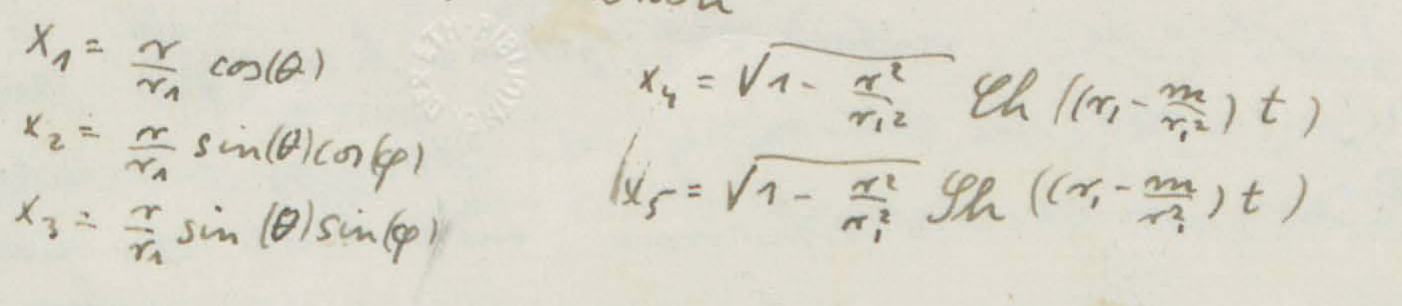 x₁ = r/r₁ cos(θ)
x₂ = r/r₁ sin(θ)cos(φ)
x₃ = r/r₁ sin(θ)sin(φ)
x₄ = √(1 - r²/r₁²) Ch((r₁ - m/r₁²) t)
x₅ = √(1 - r²/r₁²) Sh((r₁ - m/r₁²) t)